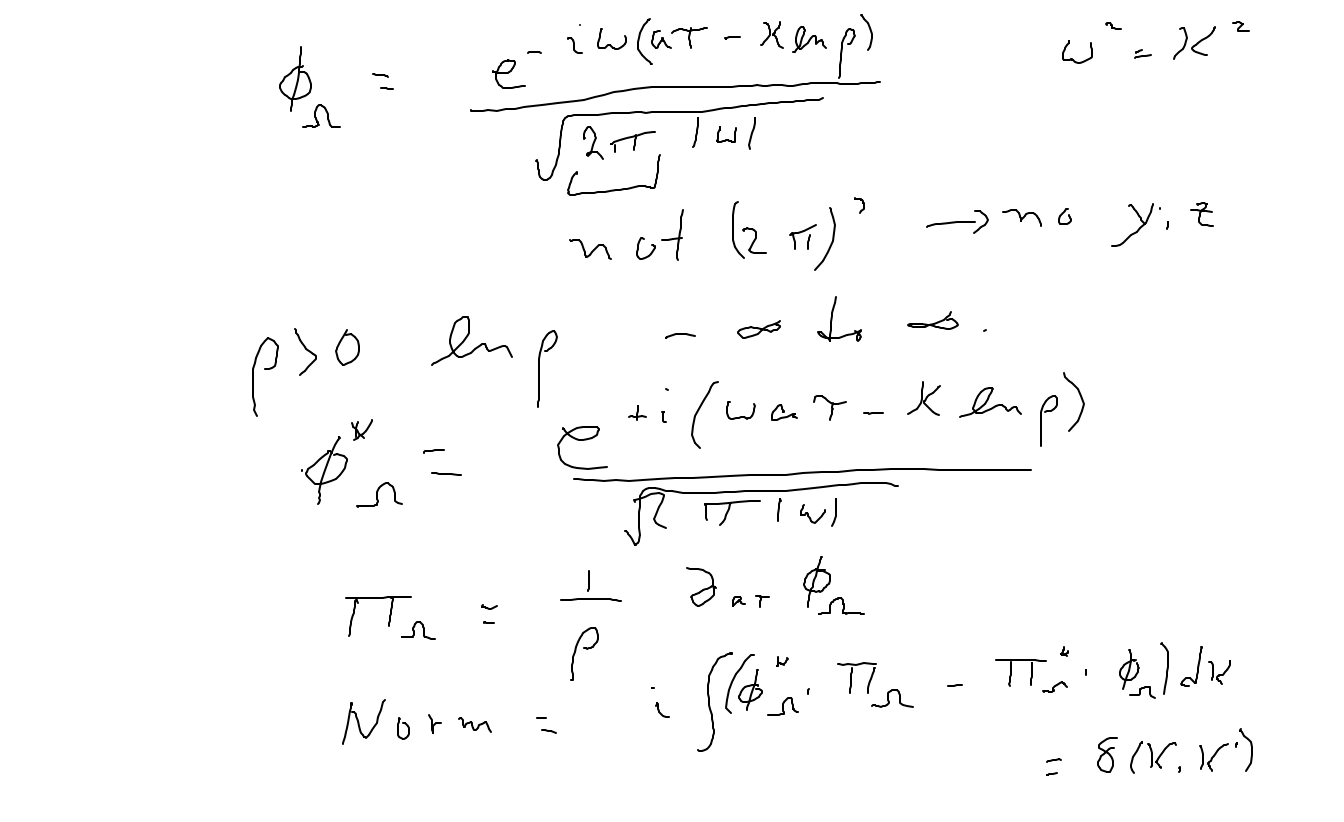 ϕ_Ω = e^{-iω(aτ - κ ln ρ)} / √(2π |ω|)    ω² = κ²
not (2π)³ → no y, z
ρ>0 ln ρ - ∞ to ∞.
ϕ*_Ω = e^{+i(ωaτ - κ ln ρ)} / √(2π|ω|)
Π_Ω = 1/ρ ∂_{aτ} ϕ_Ω
Norm = i ∫(ϕ*_Ω · Π_Ω - Π*_Ω · ϕ_Ω) dκ
= δ(κ, κ')